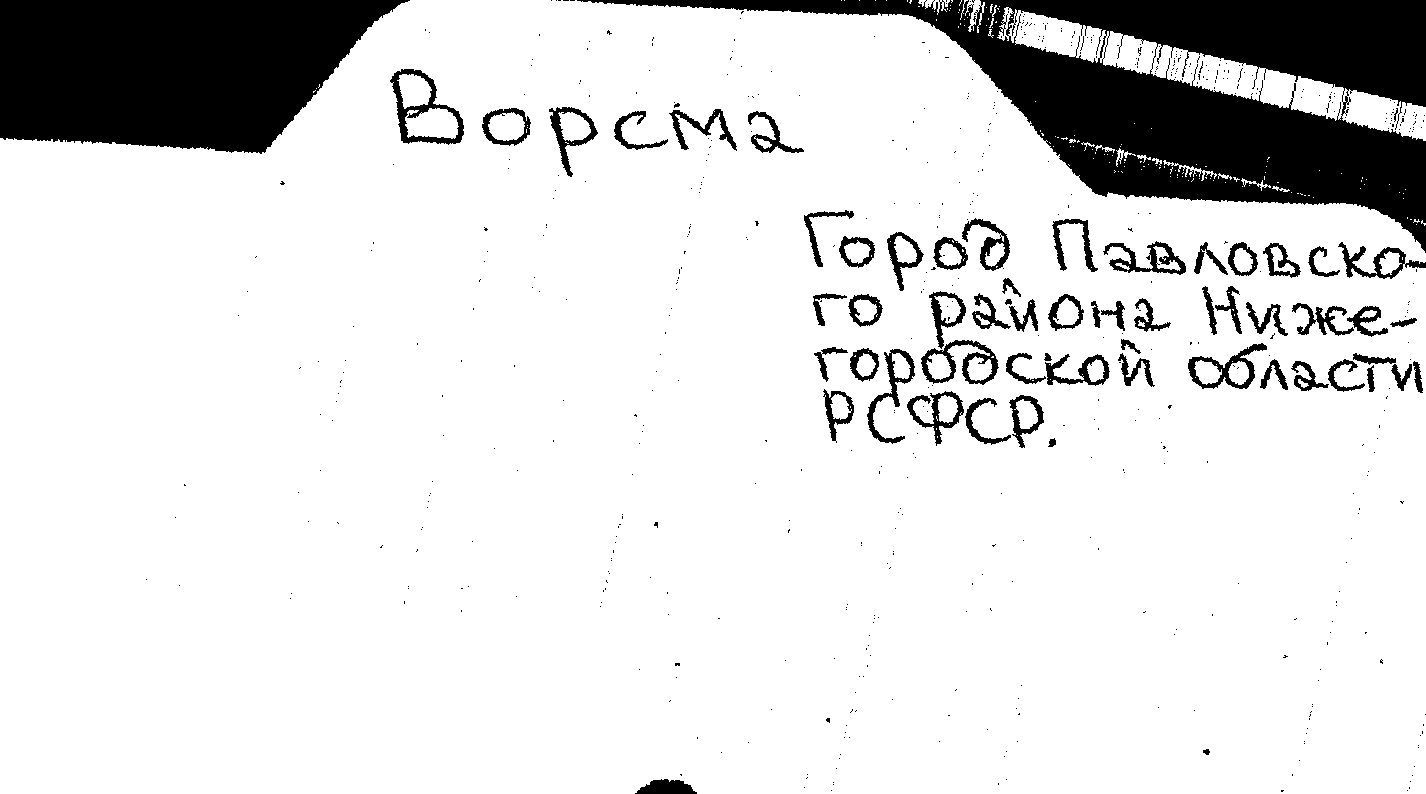 Ворсма
Город Павловско-
го района Ниже-
городской области
РСФСР.